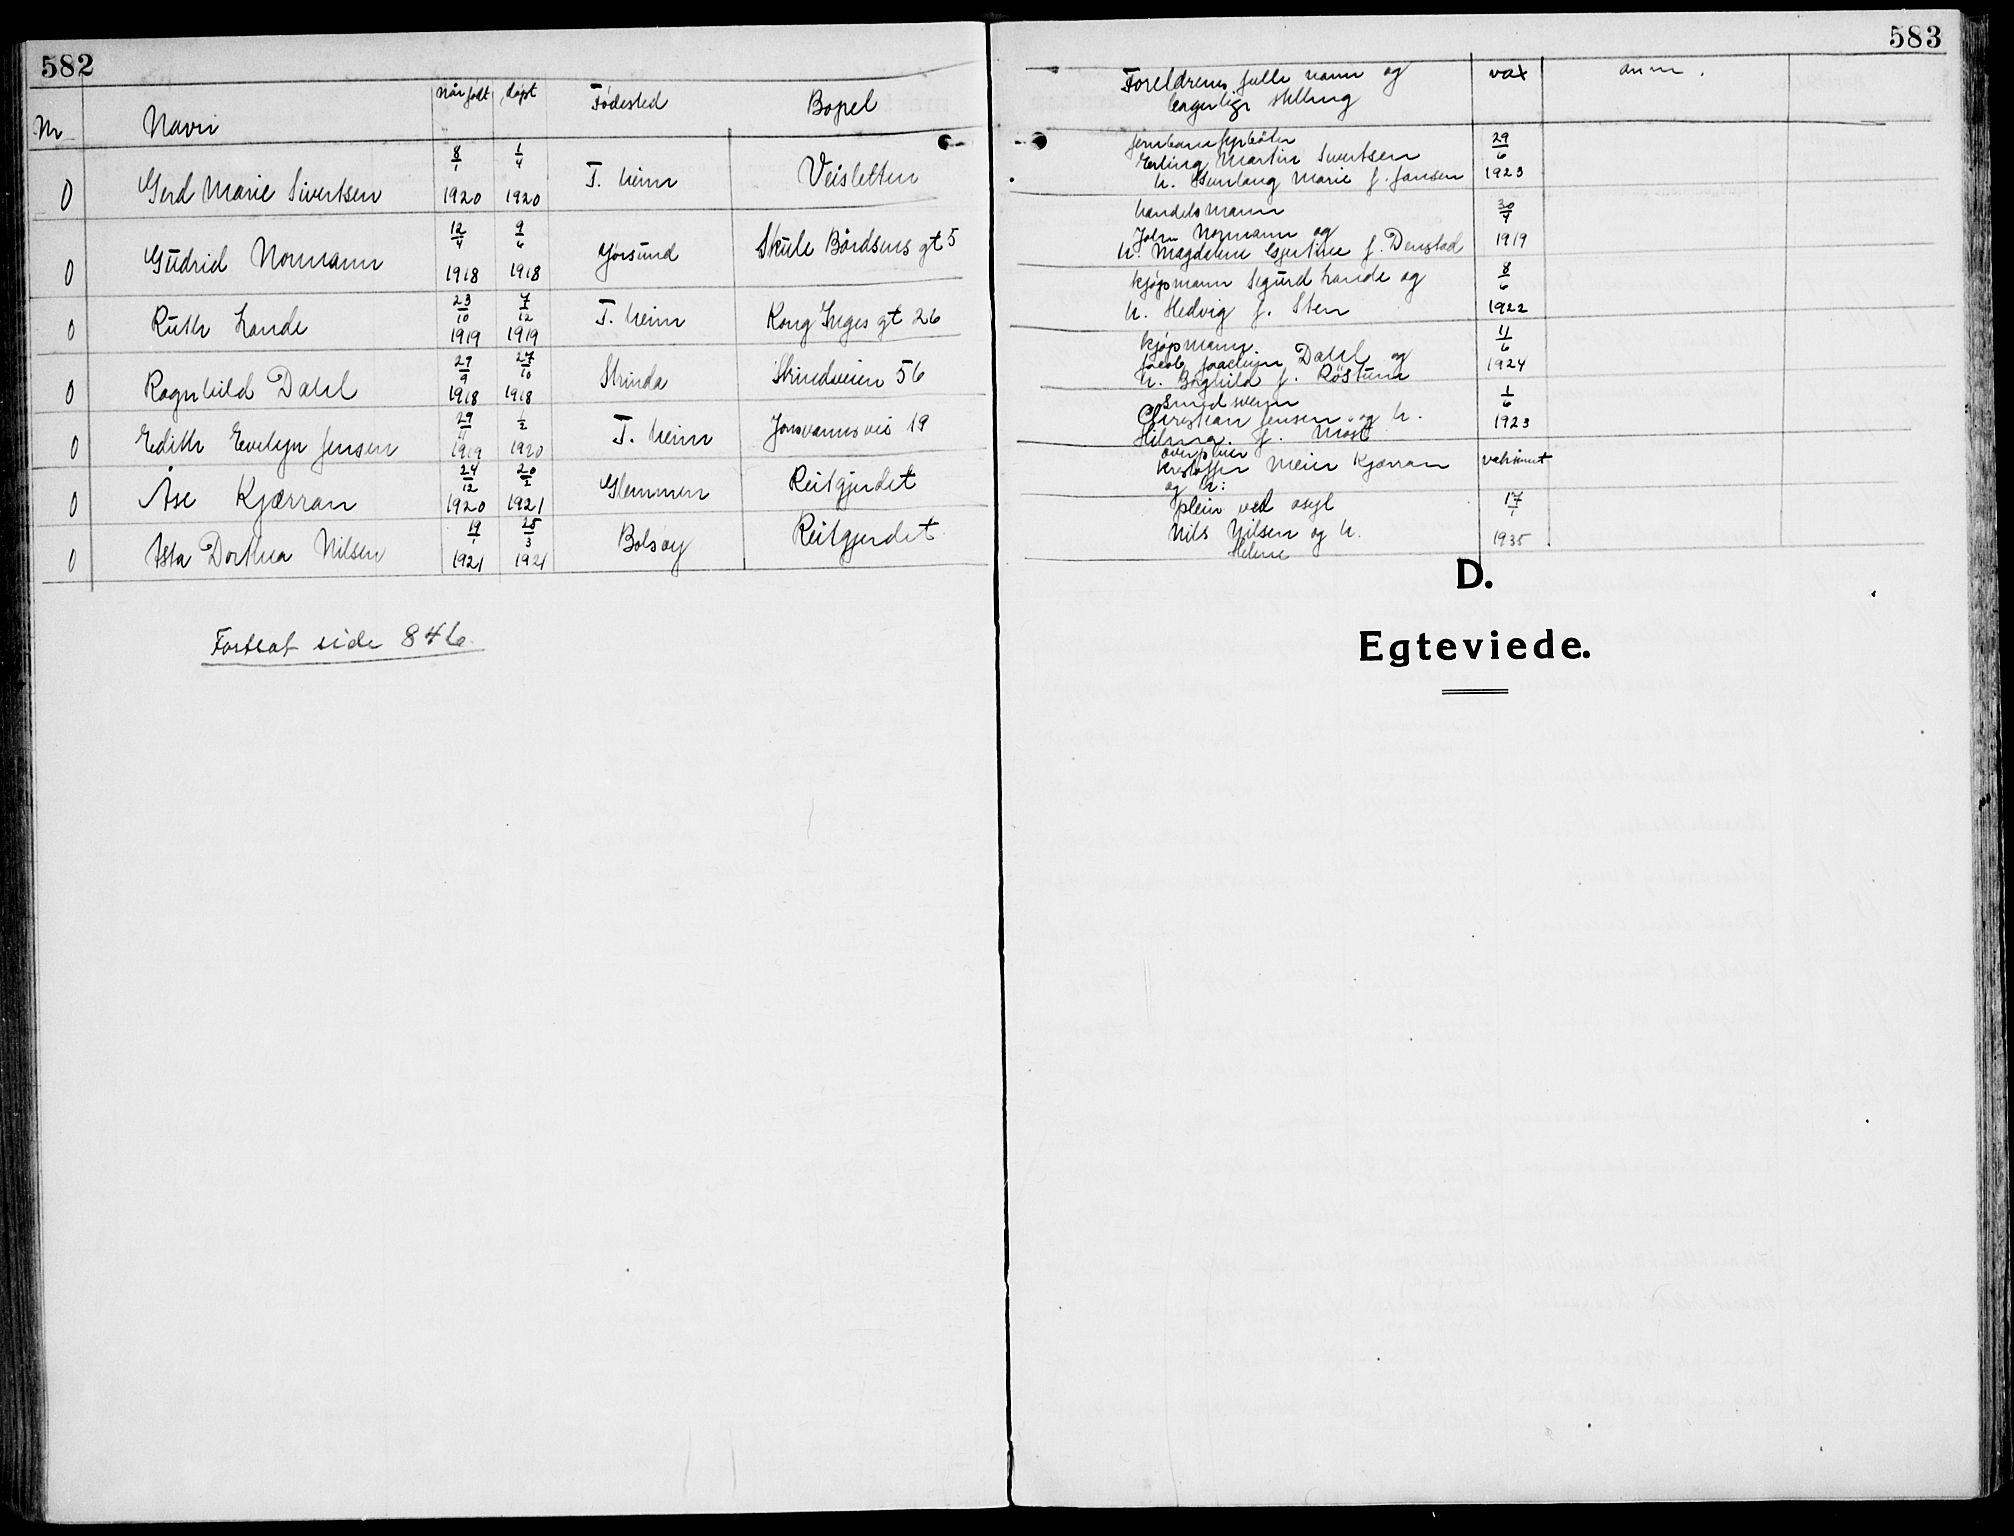 582
Nr
Navn
når født
døpt
Fødested
Bopel
0
Gerd Marie Sivertsen
8/1 1920
1/4 1920
T. heim
Veisletten
0
Gudrid Normann
12/4 1918
9/6 1918
Jøsund
Skule Bårdsens gt 5
0
Ruth Lande
23/10 1919
7/12 1919
T. heim
Kong Inges gt 26
0
Ragnhild Dahl
29/9 1918
27/10 1918
Strinda
Strindveien 56
0
Edith Evelyn Jensen
29/11 1919
1/2 1920
T. heim
Jonsvannsvei 19
0
Åse Kjærran
24/12 1920
20/2 1921
Glemmen
Reitgjerdet
0
Asta Dorthea Nilsen
19/1 1921
25/3 1921
Bolsøy
Reitgjerdet
Fortsat side 846
583
Foreldrenes fulle navn og
borgerlige stilling
vax
anm.
Erling Martin Sivertsen
h. Gunlaug Marie f. Jansen
29/6
1923
handelsmann
John Normann og
h. Magdelene Gjertine f. Denstad
30/4
1919
kjøpmann Sigurd Lande og
h. Hedvig f. Sten
8/6
1922
kjøpmann
Jacob Joachim Dahl og
h. Borghild f. Röstum
11/6
1924
smedsvenn
Christian Jensen og h.
Hilma f. Most
1/6
1923
overpleier
Kristoffer Meier Kjærran
og h:
vaksinert
pleier ved asyl
Nils Nilsen og h.
Helene
17/1
1935
D.
Egteviede.